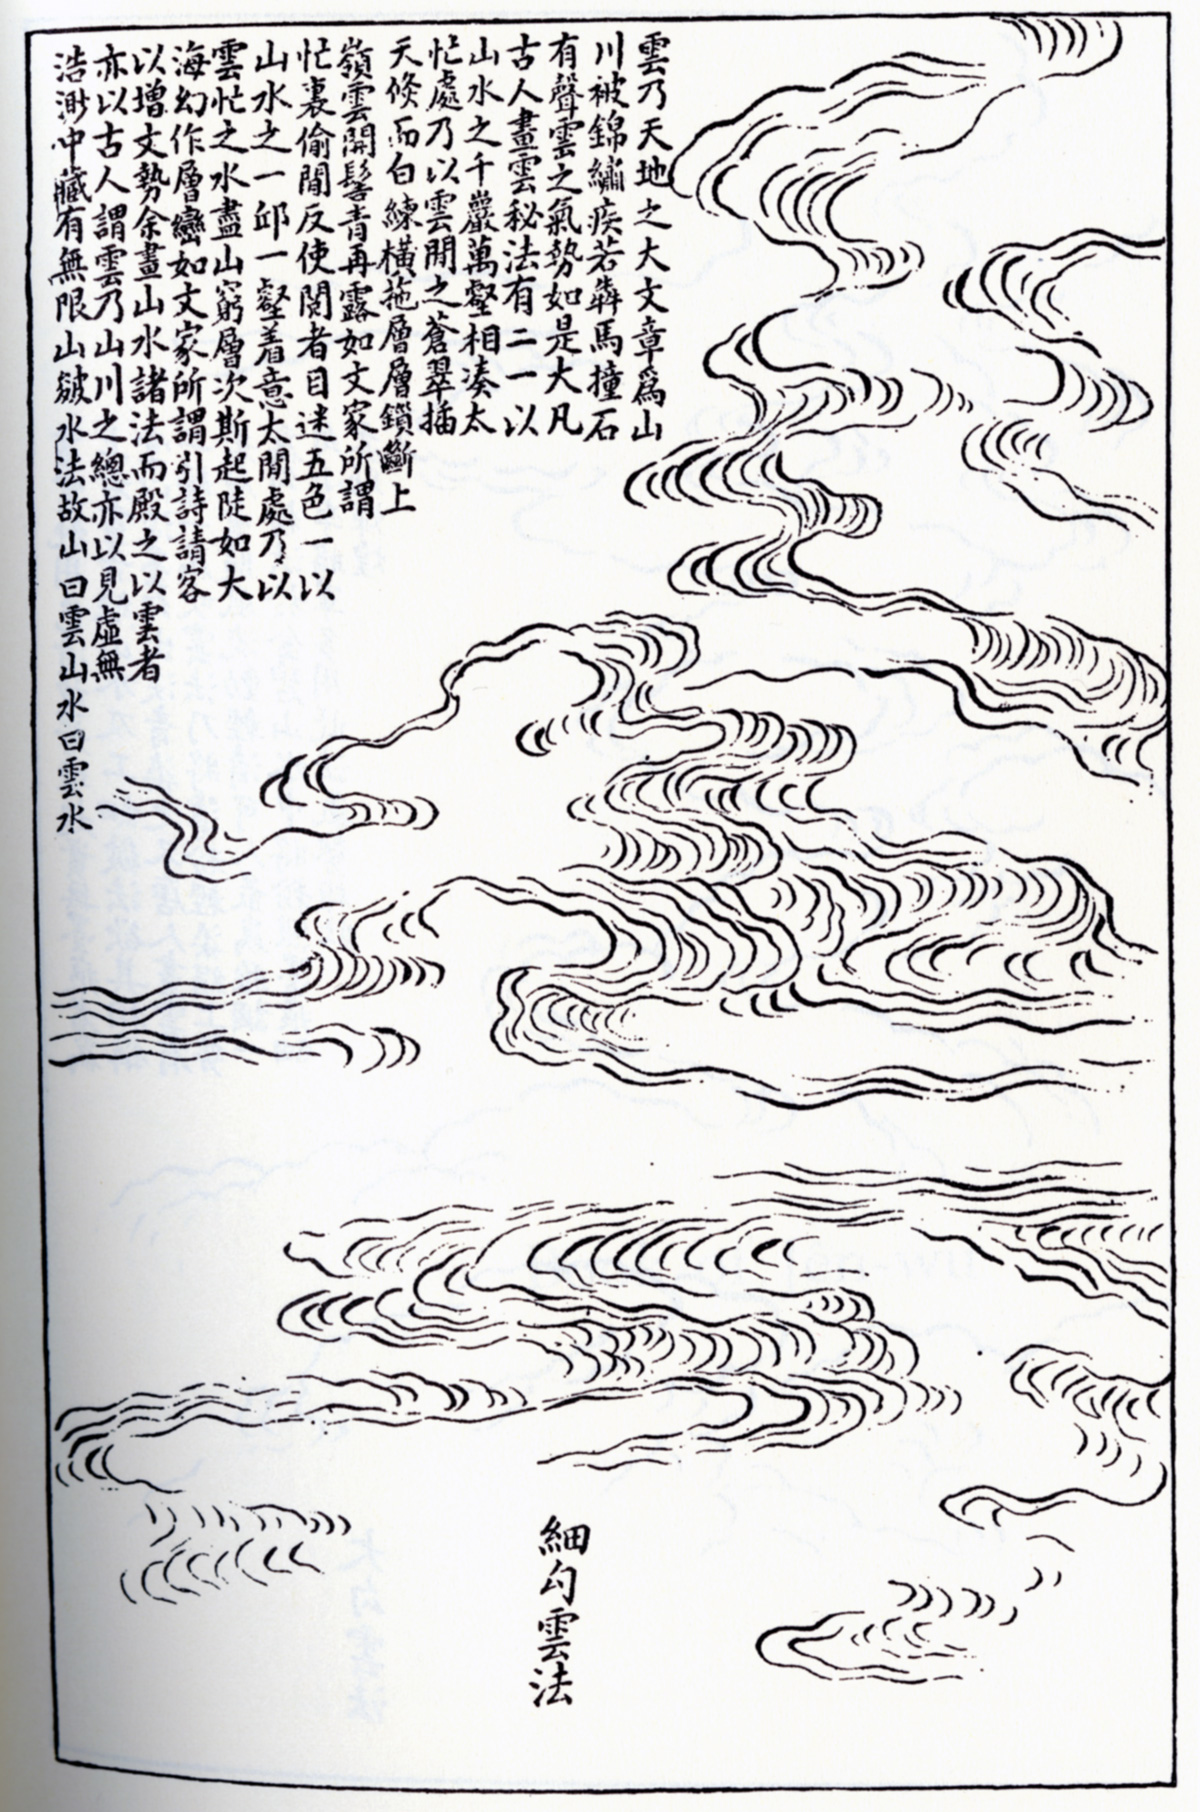 雲乃天地之大文章爲山
川被錦繡疾若犇馬撞石
有聲雲之氣勢如是大凡
古人畫雲秘法有二一以
山水之千巖萬壑相湊太
忙處乃以雲閒之蒼翠插
天倐而白練橫拖層層鎖斷上
嶺雲開髻青再露如文家所謂
忙裏偷閒反使閱者目迷五色一以
山水之一邱一壑着意太閒處乃以
雲忙之水盡山窮層次斯起陡如大
海幻作層巒如文家所謂引詩請客
以增文勢余畫山水諸法而殿之以雲者
亦以古人謂雲乃山川之總亦以見虛無
浩渺中藏有無限山皴水法故山曰雲山水曰雲水
細勾雲法